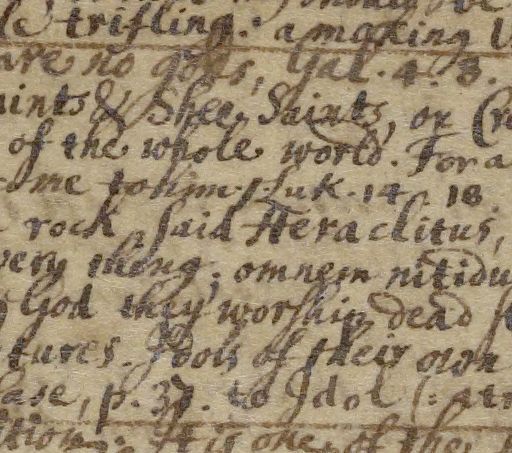 le trifling. amazing
are no gods, Gal. 4. 8.
aints & Shee Saints, or
of the whole world. For a
me to him. Luk. 14. 18.
rock, said Heraclitus,
very thing; omnem nitidu
God they worship dead
tures. Idols of their own
ase, p. 37. to Idol (:
ition. It is one of the